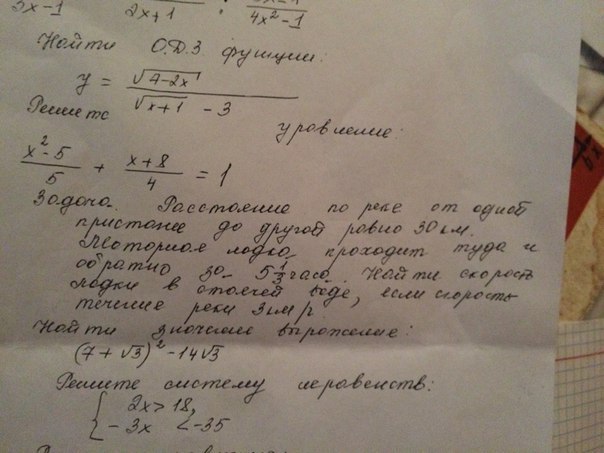 5x-1 2x+1 : 4x²-1
Найти О.Д.З функции:
y = √(4-2x) / (√(x+1) - 3)
Решите уровнение:
(x²-5)/5 + (x+8)/4 = 1
Задача. Расстояние по реке от одной
пристоне до другой ровно 30 км.
Моторноя лодка проходит туда и
обратно за 5 1/3 часо. Найти скорость
лодки в стоячей воде, если скорость
течение реки 3км/г.
Найти значение выражение:
(7+√3)² - 14√3
Решите систему неровенств:
{ 2x > 18,
-3x < -35